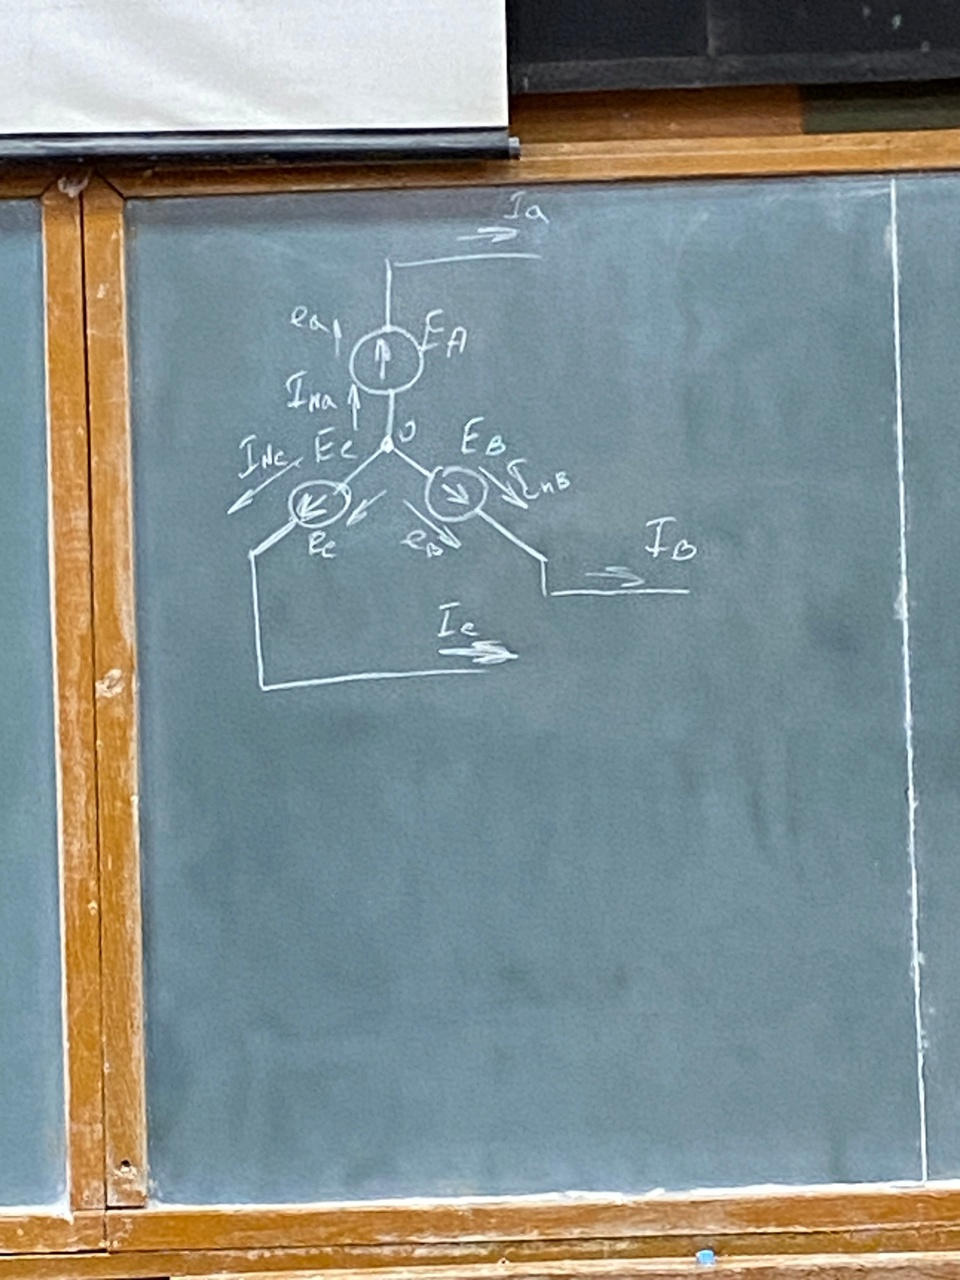 Ia
ea
EA
INa
0
INc
Ec
EB
InB
ec
eB
IB
Ic